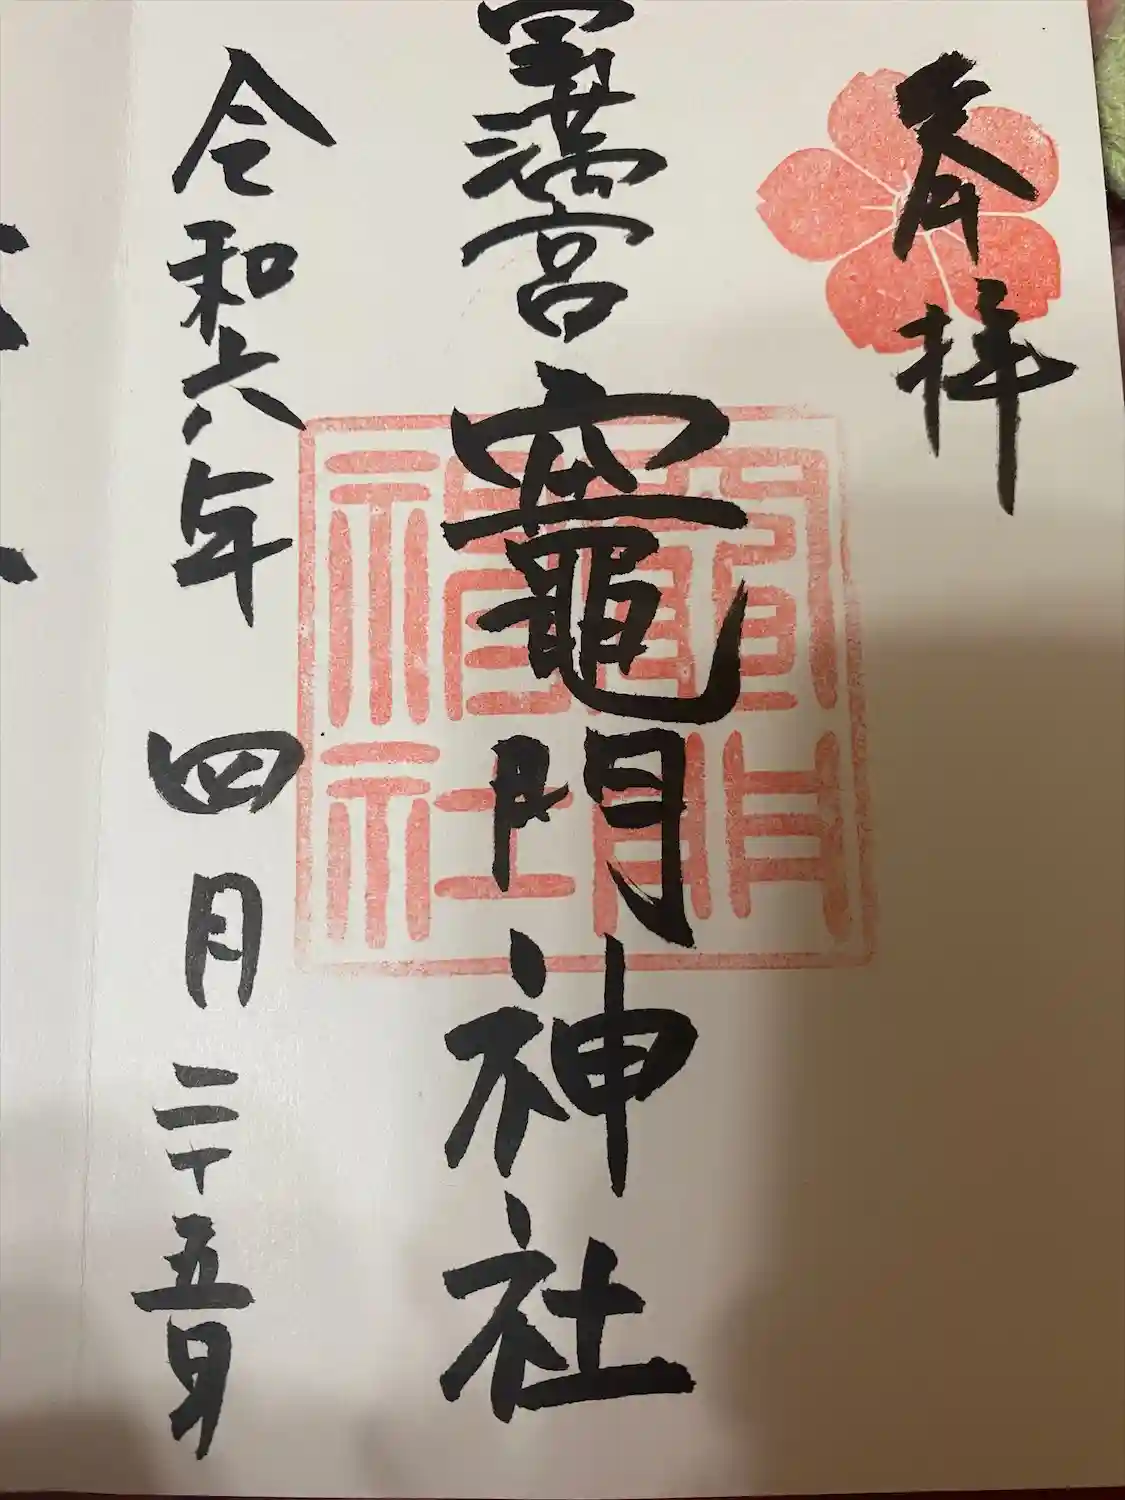 奉拝
宝満宮 竈門神社
令和六年 四月二十五日
竈門
神社